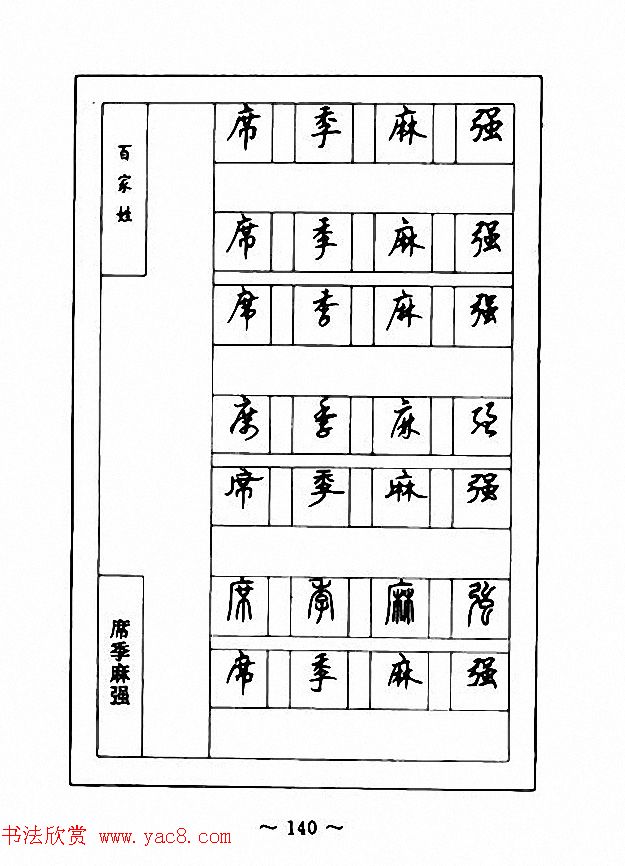 百家姓
席季麻强
席季麻强
席季麻强
席季麻强
席季麻强
席季麻强
席季麻强
席季麻强
～ 140 ～
书法欣赏 www.yac8.com